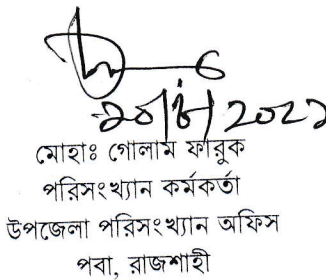 মোহাঃ গোলাম ফারুক
পরিসংখ্যান কর্মকর্তা
উপজেলা পরিসংখ্যান অফিস
পবা, রাজশাহী